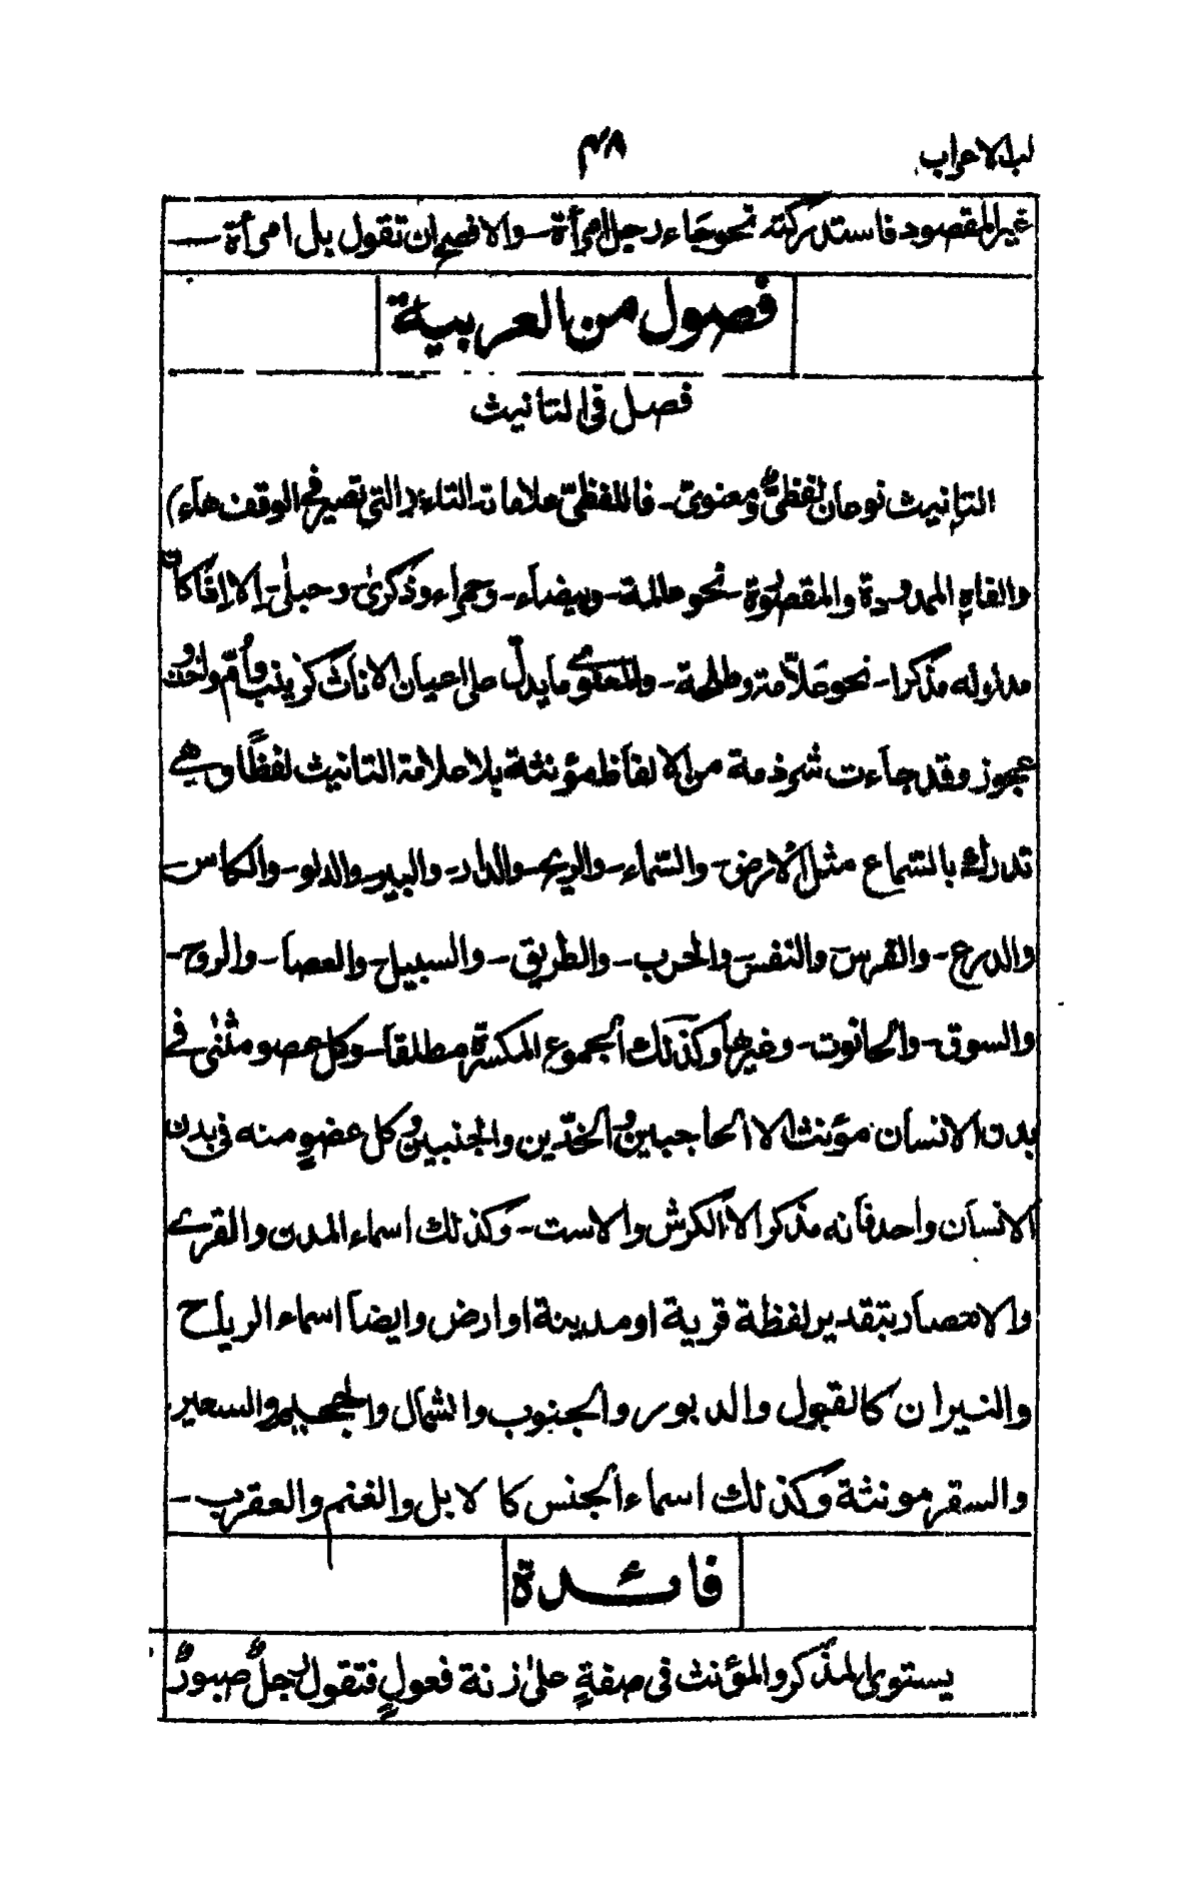 لب الاعراب
۴۸
غير المقصود فاستدركته نحو جاء رجل امرأة - والافصح ان تقول بل امرأة -
فصول من العربية
فصل فى التانيث
التانيث نوعان لفظىٌّ ومعنوىّ - فاللفظىّ علامات - التاء (التى تصير فى الوقف هاء)
والفاه الممدودة والمقصورة - نحو عالمة - وبيضاء - وحمراء وذكرىٰ - وحبلىٰ - الا اذا كان
مدلوله مذكرا - نحو علّامة وطلحة - والمعنوى مايدلّ على اعيان الاناث كزينب وأُمّ واخت و
عجوز وقد جاءت شرذمة من الالفاظ مؤنثة بلا علامة التانيث لفظًا وهى
تدرك بالسّماع مثل الارض - والسّماء - والريح - والدار - والبير - والدلو - والكاس
والدرع - والفرس والنفس والحرب - والطريق - والسبيل - والعصا - والروح -
والسوق - والحانوت - وغيرها وكذلك الجموع المكسرة مطلقا - وكل عصو مثنٰى فى
بدن الانسان مؤنث الا الحاجبين والخدّين والجنبين وكل عضوٍ منه فى بدن
الانسان واحد فأنه مذكر الا الكرش والاست - وكذلك اسماء المدن والقرى
والامصار بتقدير لفظة قرية او مدينة او ارض وايضا اسماء الرياح
والنيران كالقبول والدبور والجنوب والشمال والجحيم والسعير
والسقر مونثة وكذلك اسماء الجنس كا لابل والغنم والعقرب -
فائدة
يستوى المذكر والمؤنث فى صفةٍ علىٰ زنة فعولٍ فتقول رجلٌ صبورٌ